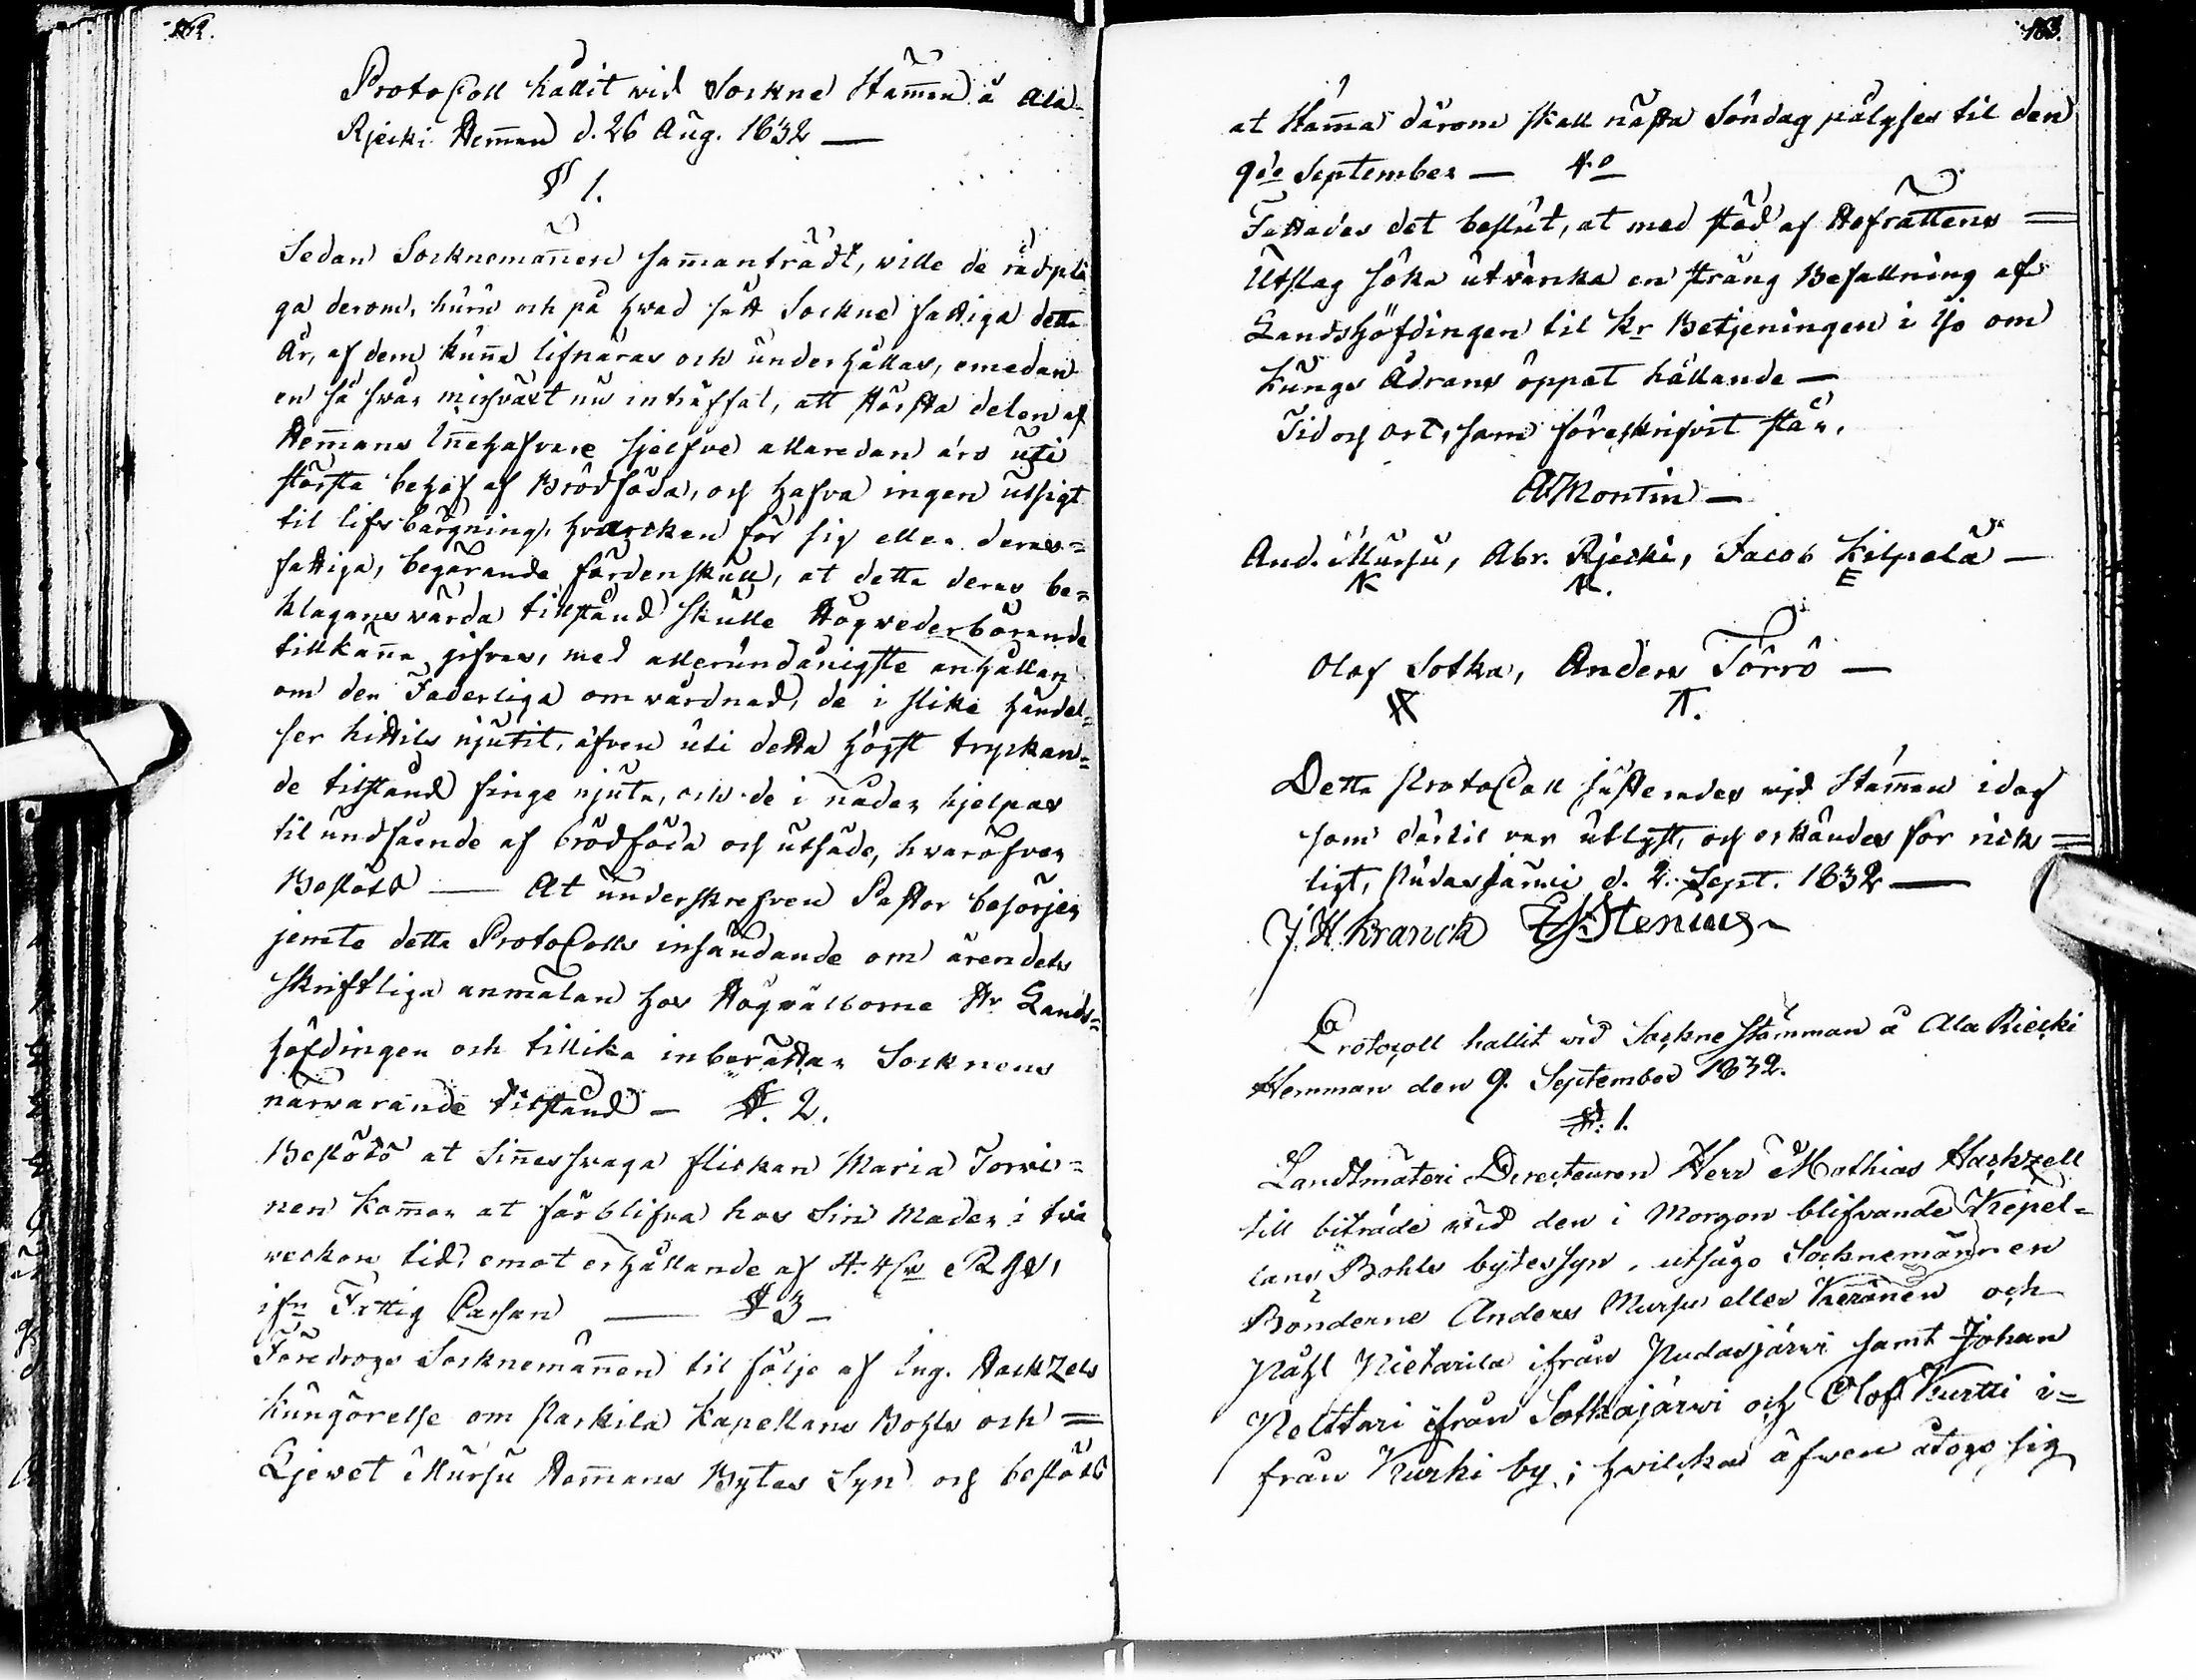 162.
Protocoll hållit wid Sockne Stam̄an å Ala-
Rjecki Hem̄an d. 26 Aug. 1832 —
§ 1.
Sedan Socknemän̄en sam̄anträdt, wille de rådplä-
ga derom, huru och på hwad sätt Sockne fattiga detta
År, af dem kun̄a lifnäras och underhållas, emedan
en så swår missväxt nu inträffat, att största delen af
Hem̄ans In̄ehafvare sjelfve allaredan äro uti
största behof af Brödföda, och hafva ingen utsigt
til lifsbärgning, hvarcken för sig eller deras=
fattiga, begärande fördenskull, at detta deras be=
klagansvärda tillstånd skulle Högwederbörande
tillkän̄a gifvas, med allerundånigste anhållan
om den Faderliga omvårdnad, de i slike händel=
ser hittils njutit, äfven uti detta högst tryckan=
de tilstånd finge njuta, och de i nåder hjelpas
til undfående af brödföda och utsäde, hvaröfver
Beslöts — At underskrefven Pastor besörjer
jemte detta Protocolls insändande om ärendets
skriftliga anmälan hos Högwälborne Hr Lands=
höfdingen och tillika inberättar Socknens
närwarande tilstånd — §. 2.
Beslöts at Sin̄esswaga flickan Maria Torwi=
nen kom̄er at förblifva hos sin Moder i två
veckors tid, emot erhållande af 4 Rgs,
ifrn Fattig Cassan — § 3 —
Föredrogs Socknemän̄en til följe af Ing. Hackzels
kungörelse om Parkila Kapellans Bohls och =
Ljewet Mursu Hem̄ans Bytes Syn och beslöts
163.
at Stäm̄a därom skall nästa Söndag pålyses til den
9de September — 4o
Fattades det beslut, at med stöd af Hofrättens =
Utslag söka utvärka en sträng Befallning af
Landshöfdingen til Kr Betjeningen i Ijo om
Kungs Ådrans öppet hållande —
Tid och ort, som föreskrifvit står.
A Montin —
And. Mursu, Abr. Rjecki, Jacob Kilpelä —
Olof Sotka, Anders Törrö —
Detta Protocoll justerades wid Stäm̄an idag
som därtil var utlyst, och erkändes för rick=
tigt, Pudasjärvi d. 2. Sept. 1832 —
J. H. Kranck Stenius
Protocoll hållit wid Sockne Stämman å Ala Riecki
Hemman den 9. September 1832.
§. 1.
Landtmäteri Directeuren Herr Mathias Hackzell
till biträde wid den i Morgon blifvande Kapel=
lans Bohls bytessyn, utsågo Socknemännen
Bönderne Anders Mursu eller Keränen och
Påhl Nietarila ifrån Pudasjärwi samt Johan
Pelttari ifrån Sotkajärwi och Olof Kurtti i=
från Kurki by; hvilka äfwen åtogo sig